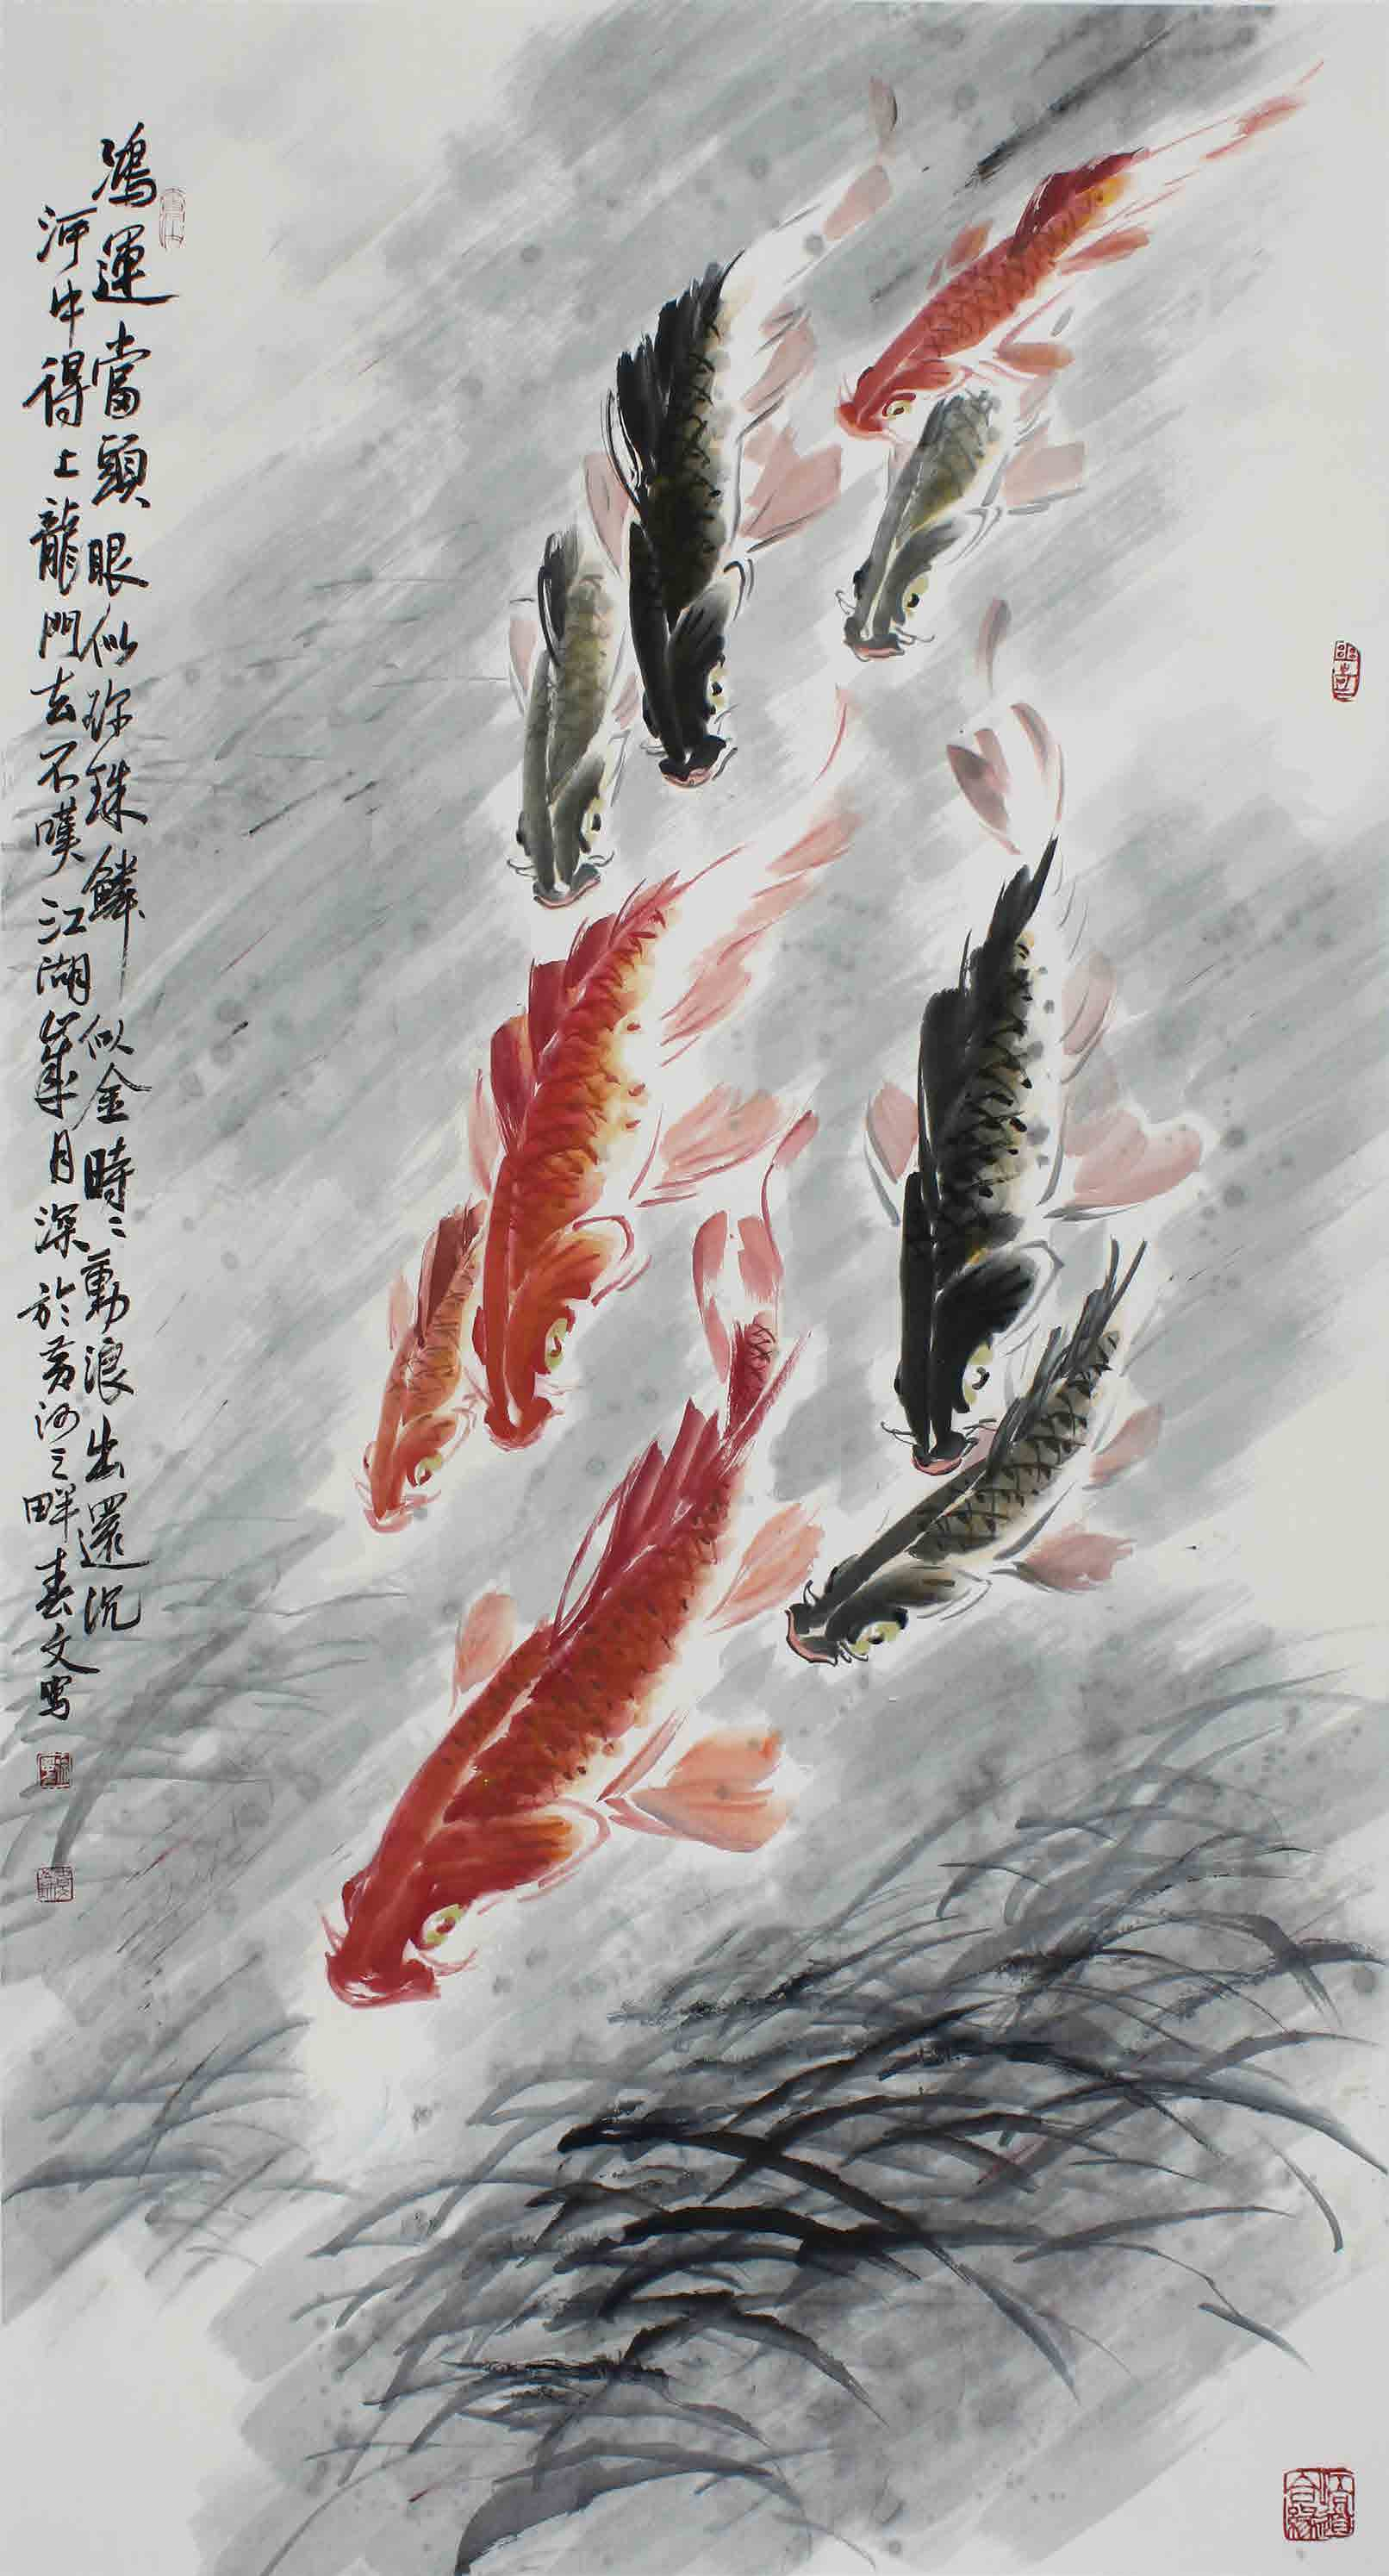 鴻運當頭眼似珍珠鱗似金時二動浪出還沉
河中得上龍門去不嘆江湖歲月深於黄河之畔春文寫